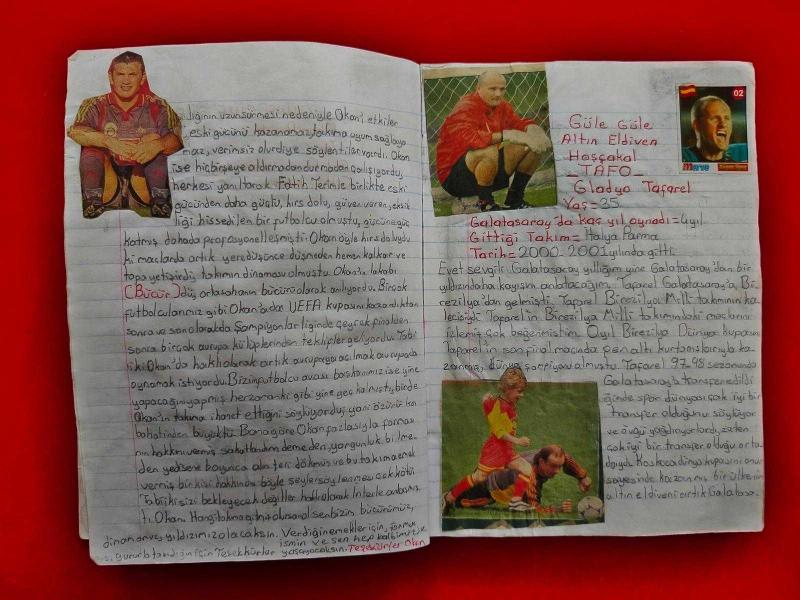 liğinin uzun sürmesi nedeniyle Okan'ı etkiler
eski gücünü kazanamaz, takıma uyum sağlaya
maz, verimsiz olur diye söylentiler vardı. Okan
ise hiçbirşeye aldırmadan durmadan çalışıyordu,
herkesi yanıltarak Fatih Terimle birlikte eski
gücünden daha güçlü, hırs dolu, güven veren, eksik
liği hissedilen bir futbolcu olmuştu, gücüne güç
katmış dahada profosyonelleşmişti. Okan öyle hırs doluydu
ki maçlarda artık yere düşünce düşmeden hemen kalkar ve
topa yetişirdi, takımın dinamosu olmuştu. Okan'ın lakabı
(Bücür)dü, ortasahanın bücürü olarak anılıyordu. Birçok
futbolcularımız gibi Okan'adan UEFA kupasını kazandıktan
sonra ve son olarakda Şampiyonlar liginde çeyrek finalden
sonra birçok avrupa külüplerinden teklipler geliyordu. Tabi
ki Okan'da haklı olarak artık avrupaya açılmak avrupada
oynamak istiyordu. Bizim futbolcu avcısı başkanımız ise yine
yapacağını yapmış herzamanki gibi yine geç kalmıştı, birde
Okan'ın takıma ihanet ettiğini söylüyordu, yani özürü
bahatinden büyüktü. Bana göre Okan fazlasıyla forması
nın hakkını vermiş sakatlandım demeden, yorgunluk bilme
den yedi sene boyunca alın teri dökmüş ve bu takıma emek
vermiş bir kişi hakkında böyle şeyler söylenmesi çok kötü
Tabiki kisizi bekleyecek değiller haklı olarak İnterle anlaşmış
tı. Okan Hangi takıma gitsen olsan ol sen bizim bücürümüz,
dinamomuz yıldızımız olacaksın. Verdiğin emekler için, forman
ismin ve sen hep kalbimizde
gururlandığın için Teşekkürler yaşayacaksın. Teşekkürler Okan
Güle Güle
Altın Eldiven
Hoşçakal
_TAFO_
Gladyo Tafarel
Yaş=35
Galatasaray'da kaç yıl oynadı=4 yıl
Gittiği Takım= İtalya Parma
Tarih=2000-2001 yılında gitti.
Evet sevgili Galatasaray yıllığım yine Galatasaray'dan bir
yıldızın daha kayışını anlatacağım. Tafarel Galatasaray'a, Bi
rezilya'dan gelmişti. Tafarel Birezilya Milli takımının ka
lecisiydi. Tafarel'in Birezilya Milli takımındaki maçlarını
izlemiş çok beğenmiştim. O yıl Birezilya Dünya kupasını
Tafarel'in son final maçında penaltı kurtarışlarıyla ka
zanmış, dünya şampiyonu olmuştu. Tafarel 97-98 sezonunda
Galatasaray'a transfer edildi
ğinde spor dünyası çok iyi bir
transfer olduğunu söylüyor
ve övgü yağdırıyorlardı, zaten
çok iyi bir transfer olduğu orta
daydı. Koskoca dünya kupasını onun
sayesinde kazanmış bir ülkenin
altın eldiveni artık Galatasa.
02
Merve